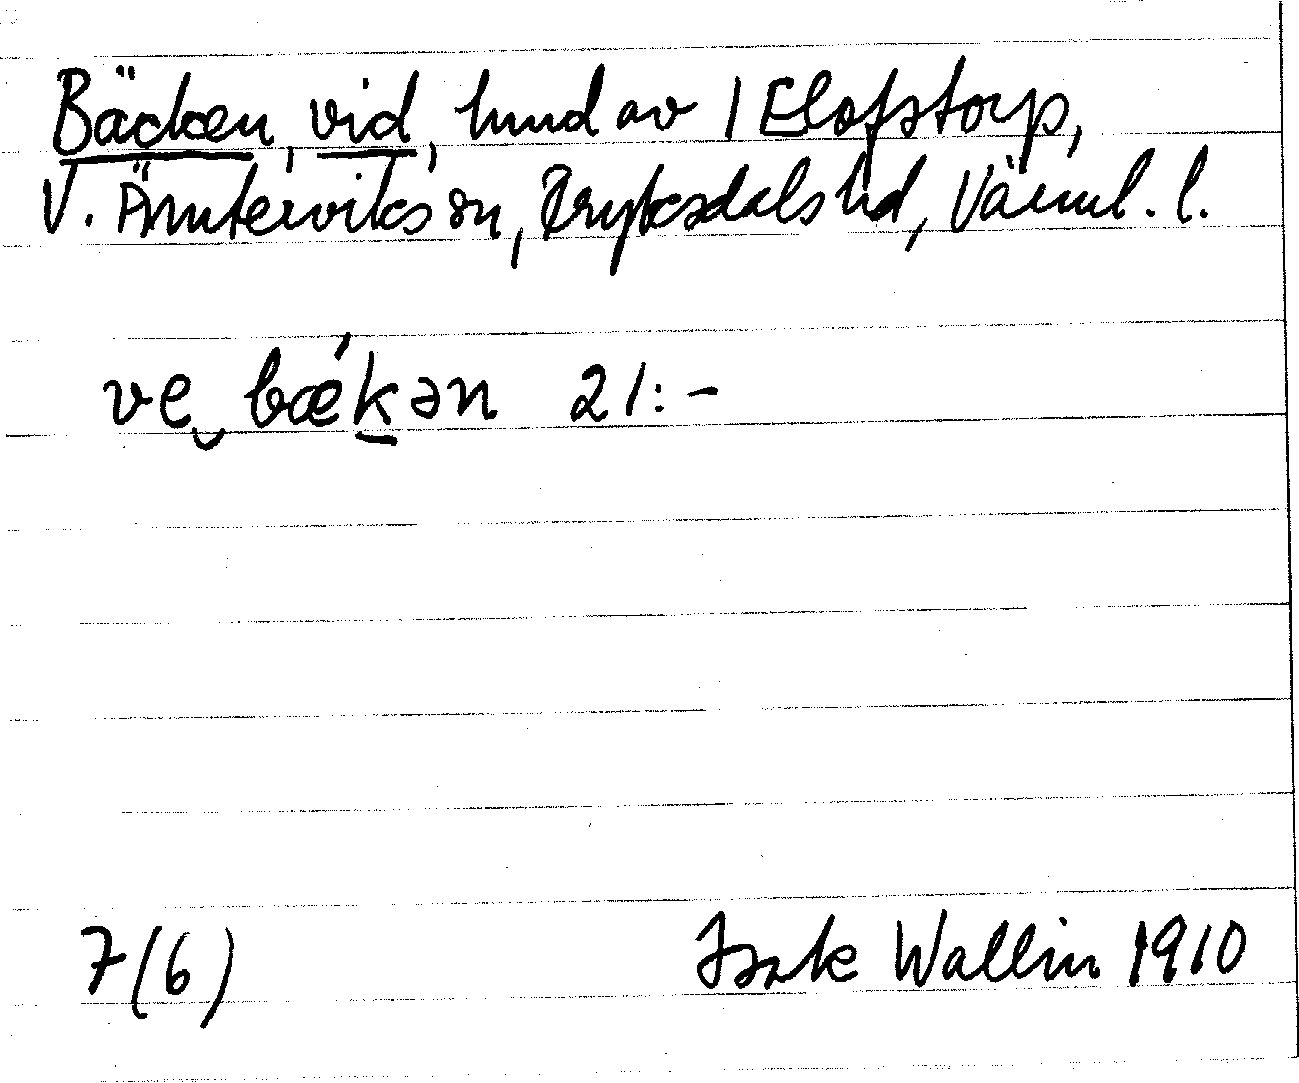 Bäcken, vid, hmd av 1 Elofstorp,
V. Ämterviks sn, Fryksdals hd, Värml. l.
ve bækən 21:-
7(6) Isak Wallin 1910